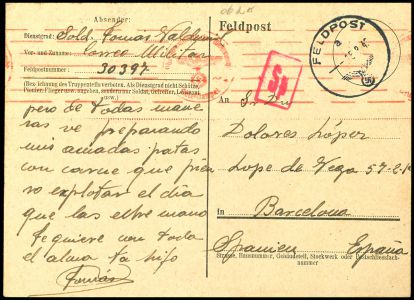 Absender:
Dienstgrad: Sold. Tomas
Vor- und Zuname: Correo Militar
Feldpostnummer: 30397
Bezeichnung des Truppenteils verboten. Als Dienstgrad nicht Schütze,
Pionier, Flieger usw. angeben, sondern nur Soldat, Gefreiter,
usw.)
pero de todas mane
ras ve preparando
mis amadas patas
con carne que
ro explotar el dia
que las
te quiere con toda
el alma tu hijo
Tomás
Feldpost
FELDPOST
a
An
Dolores López
Lope de Vega 57-2-1
in Barcelona
Spanien España
Straße, Hausnummer, Gebäudeteil, Stockwerk oder Postschließfach-
nummer